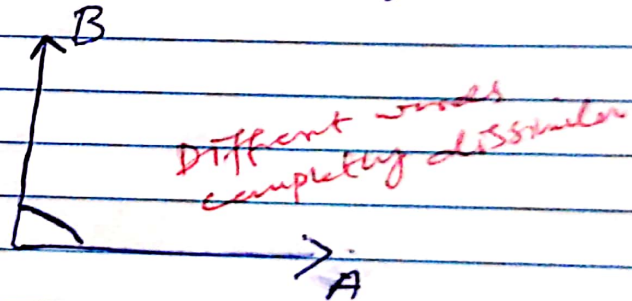 B
Different words
completly dissimilar
A